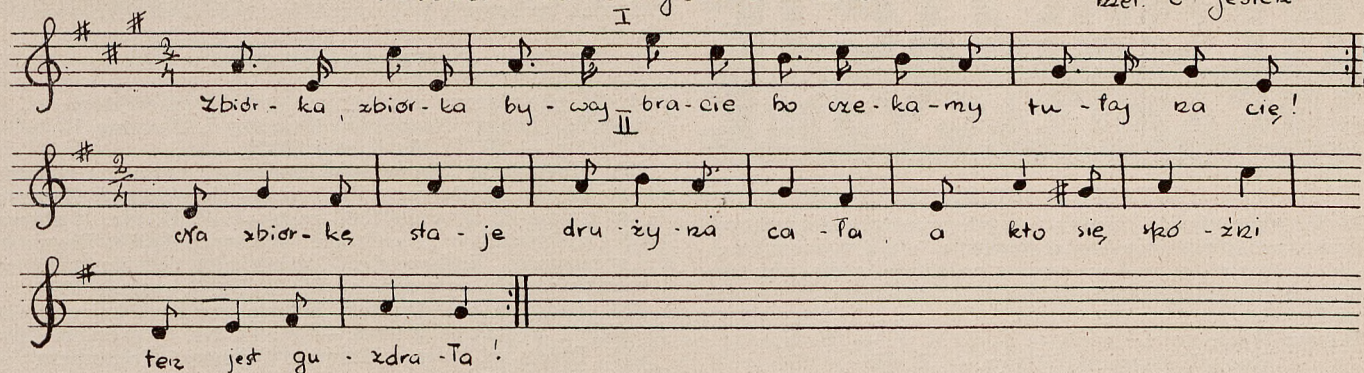 I
jesień
Zbiór-ka, zbiór-ka by-waj bra-cie bo cze-ka-my tu-taj na cię!
II
Na zbiór-kę sta-je dru-ży-na ca-ła, a kto się spó-źni
ten jest gu-zdra-ła!